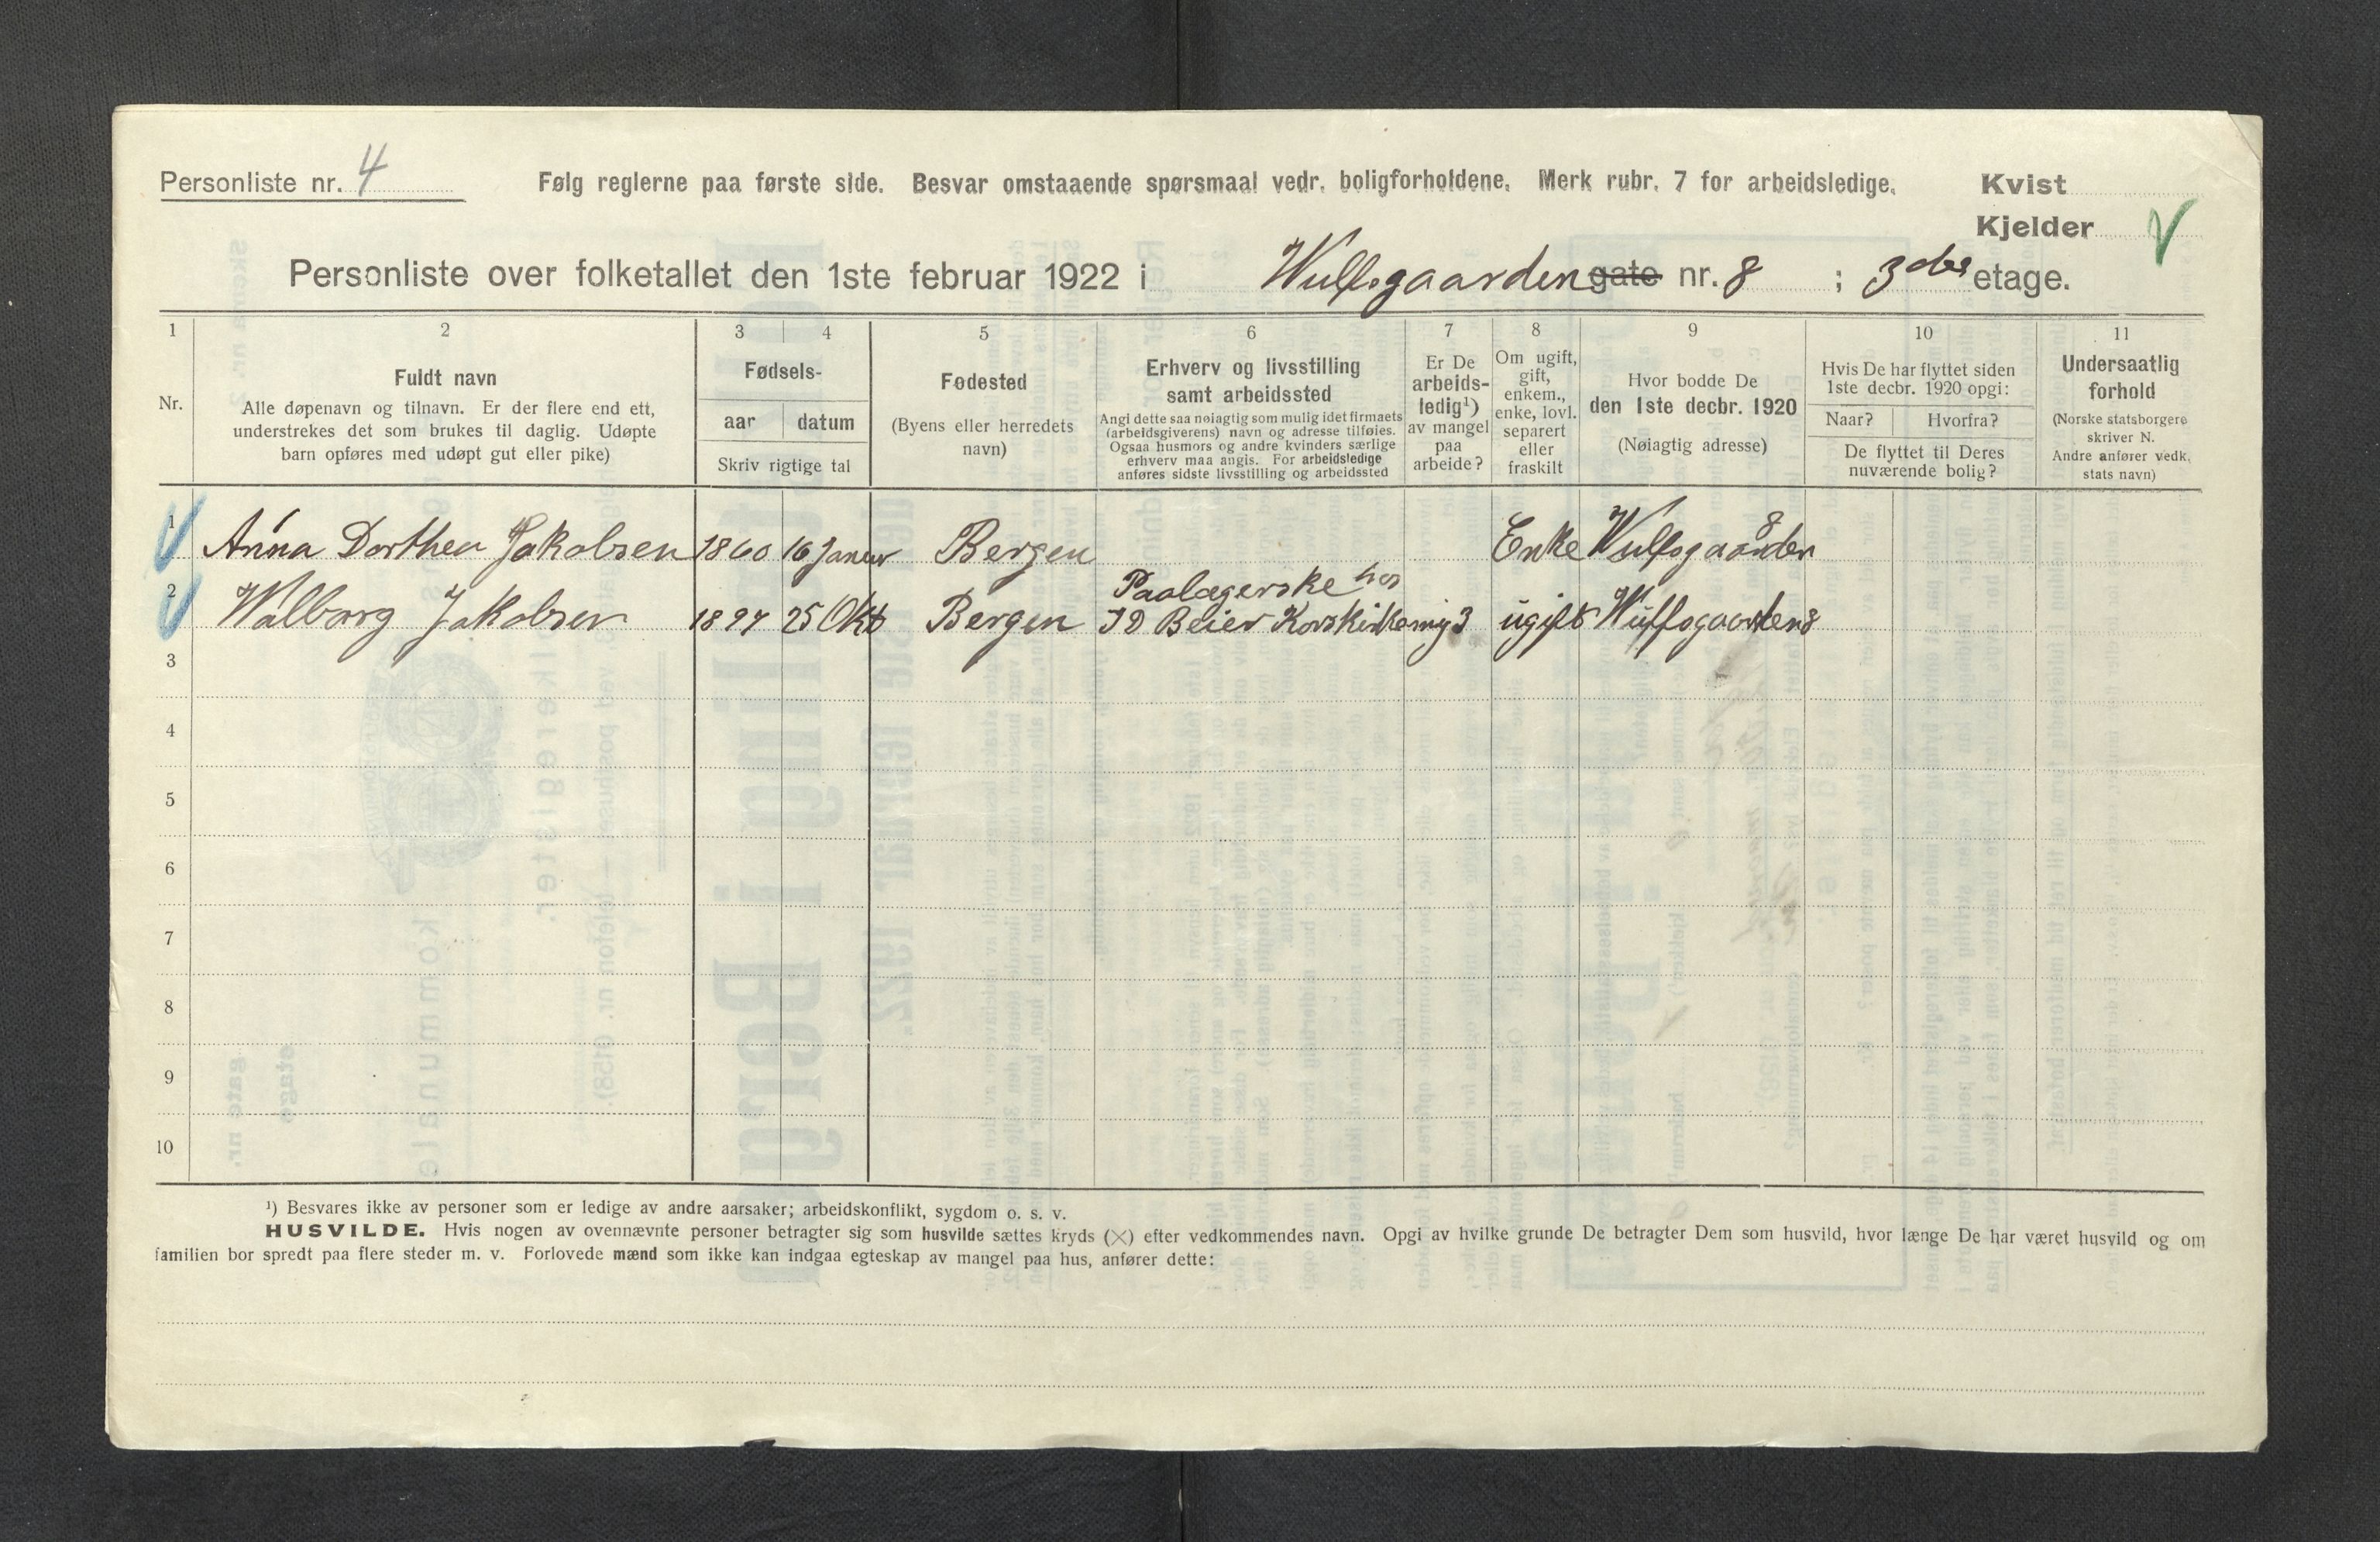 Personliste nr. 4
Følg reglerne paa første side. Besvar omstaaende spørsmaal vedr. boligforholdene. Merk rubr. 7 for arbeidsledige.
Kvist
Kjelder
Personliste over folketallet den 1ste februar 1922 i Wulfsgaarden gate nr. 8 ; 3die etage.
1 2 3 4 5 6 7 8 9 10 11
Nr.
Fuldt navn
Alle døpenavn og tilnavn. Er der flere end ett,
understrekes det som brukes til daglig. Udøpte
barn opføres med udøpt gut eller pike)
Fødsels-
aar datum
Skriv rigtige tal
Fødested
(Byens eller herredets
navn)
Erhverv og livsstilling
samt arbeidssted
Angi dette saa nøiagtig som mulig idet firmaets
(arbeidsgiverens) navn og adresse tilføies.
Ogsaa husmors og andre kvinders særlige
erhverv maa angis. For arbeidsledige
anføres sidste livsstilling og arbeidssted
Er De
arbeids-
ledig¹)
av mangel
paa
arbeide?
Om ugift,
gift,
enkem.,
enke, lovl.
separert
eller
fraskilt
Hvor bodde De
den 1ste decbr. 1920
(Nøiagtig adresse)
Hvis De har flyttet siden
1ste decbr. 1920 opgi:
Naar? Hvorfra?
De flyttet til Deres
nuværende bolig?
Undersaatlig
forhold
(Norske statsborgere
skriver N.
Andre anfører vedk.
stats navn)
1 Anna Dorthea Jakobsen 1860 16 Januar Bergen Enke Wulfsgaarden 8
2 Walborg Jakobsen 1897 25 Okt Bergen Paalægerske hos
J D Beier Korskirkemug 3 ugift Wulfsgaarden 8
3
4
5
6
7
8
9
10
¹) Besvares ikke av personer som er ledige av andre aarsaker; arbeidskonflikt, sygdom o. s. v.
HUSVILDE. Hvis nogen av ovennævnte personer betragter sig som husvilde sættes kryds (×) efter vedkommendes navn. Opgi av hvilke grunde De betragter Dem som husvild, hvor længe De har været husvild og om
familien bor spredt paa flere steder m. v. Forlovede mænd som ikke kan indgaa egteskap av mangel paa hus, anfører dette: